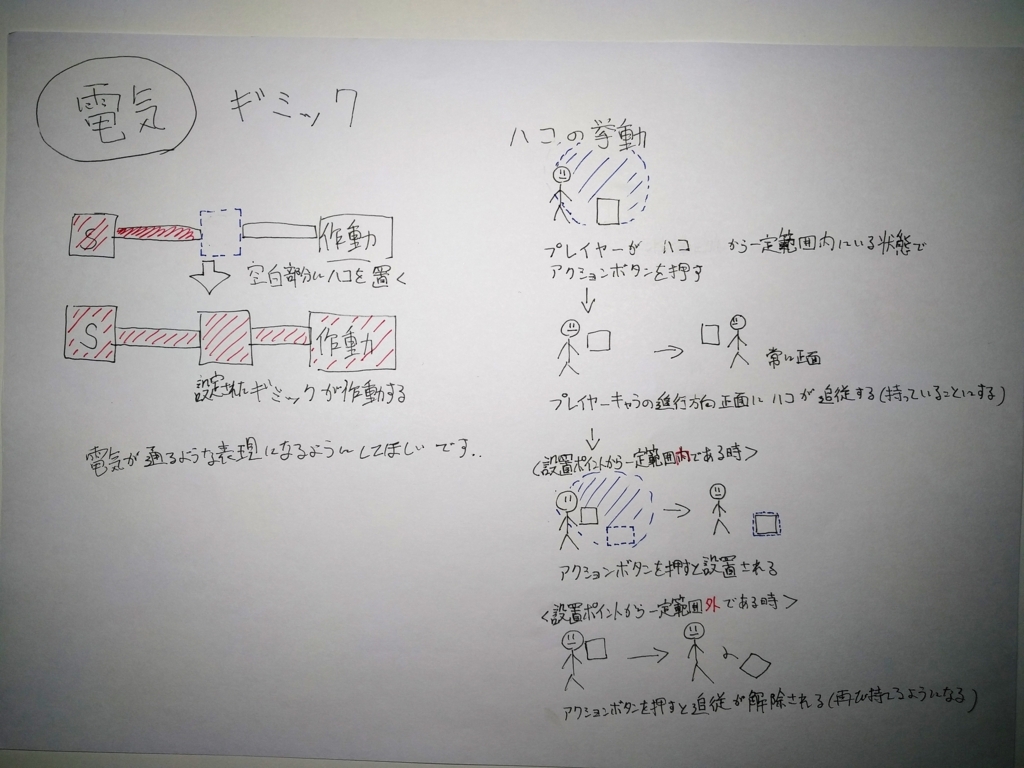 電気 ギミック
S 作動
空白部分にハコを置く
S 作動
設定されたギミックが作動する
電気が通るような表現になるようにしてほしいです..
ハコの挙動
プレイヤーが ハコ から一定範囲内にいる状態で
アクションボタンを押す
常に正面
プレイヤーキャラの進行方向正面にハコが追従する(持っていることにする)
<設置ポイントから一定範囲内である時>
アクションボタンを押すと設置される
<設置ポイントから一定範囲外である時>
アクションボタンを押すと追従が解除される(再び持てるようになる)